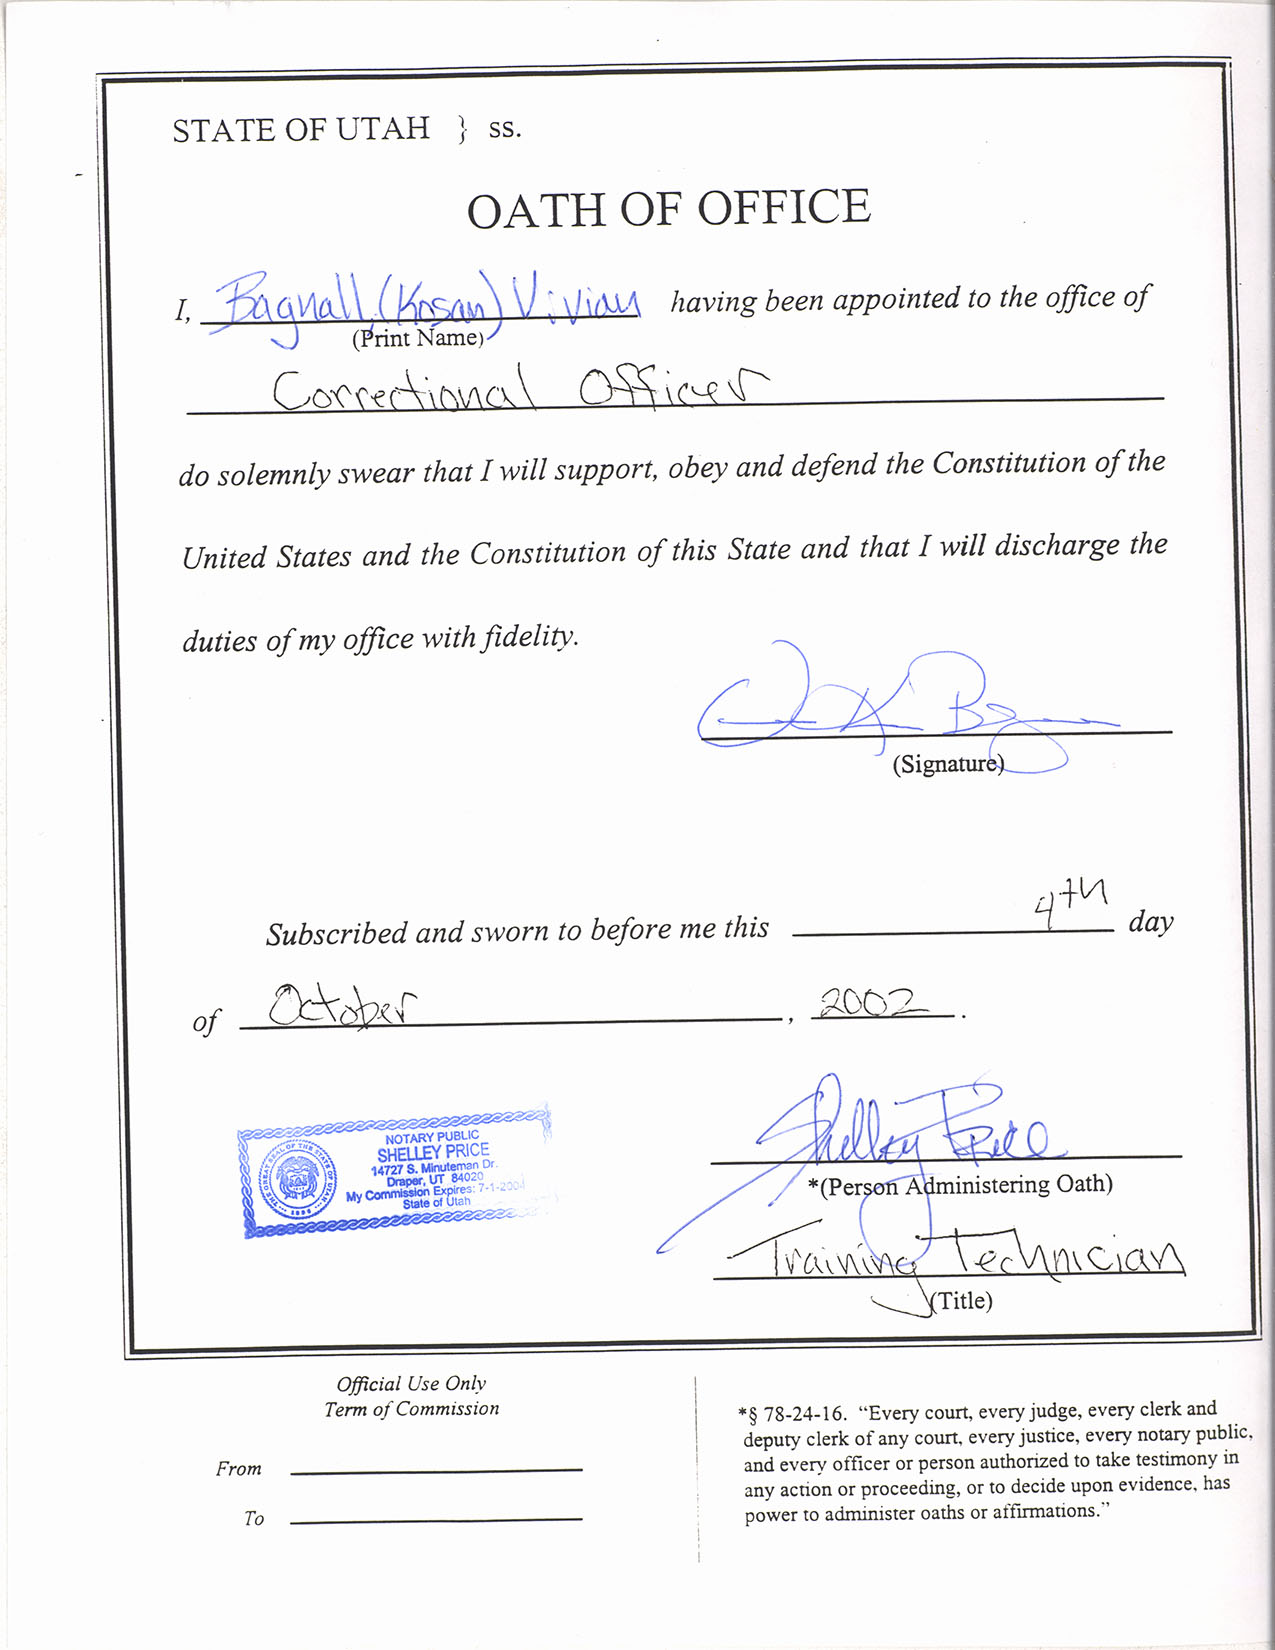 STATE OF UTAH } ss.
OATH OF OFFICE
I, Bagnall, (Kosan) Vivian having been appointed to the office of
(Print Name)
Correctional Officer
do solemnly swear that I will support, obey and defend the Constitution of the
United States and the Constitution of this State and that I will discharge the
duties of my office with fidelity.
(Signature)
Subscribed and sworn to before me this 4th day
of October, 2002.
NOTARY PUBLIC
SHELLEY PRICE
14727 S. Minuteman Dr.
Draper, UT 84020
My Commission Expires: 7-1-2004
State of Utah
THE GREAT SEAL OF THE STATE OF UTAH
1896
Shelley Price
*(Person Administering Oath)
Training Technician
(Title)
Official Use Only
Term of Commission
From
To
*§ 78-24-16. “Every court, every judge, every clerk and
deputy clerk of any court, every justice, every notary public,
and every officer or person authorized to take testimony in
any action or proceeding, or to decide upon evidence, has
power to administer oaths or affirmations.”